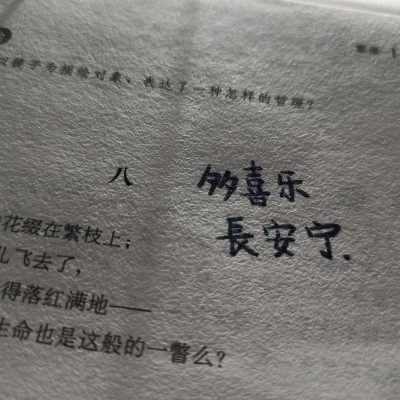 以镜子为描绘对象，表达了一种怎样的哲理？
八
多喜乐
長安宁.
花缀在繁枝上；
飞去了，
得落红满地——
生命也是这般的一瞥么？